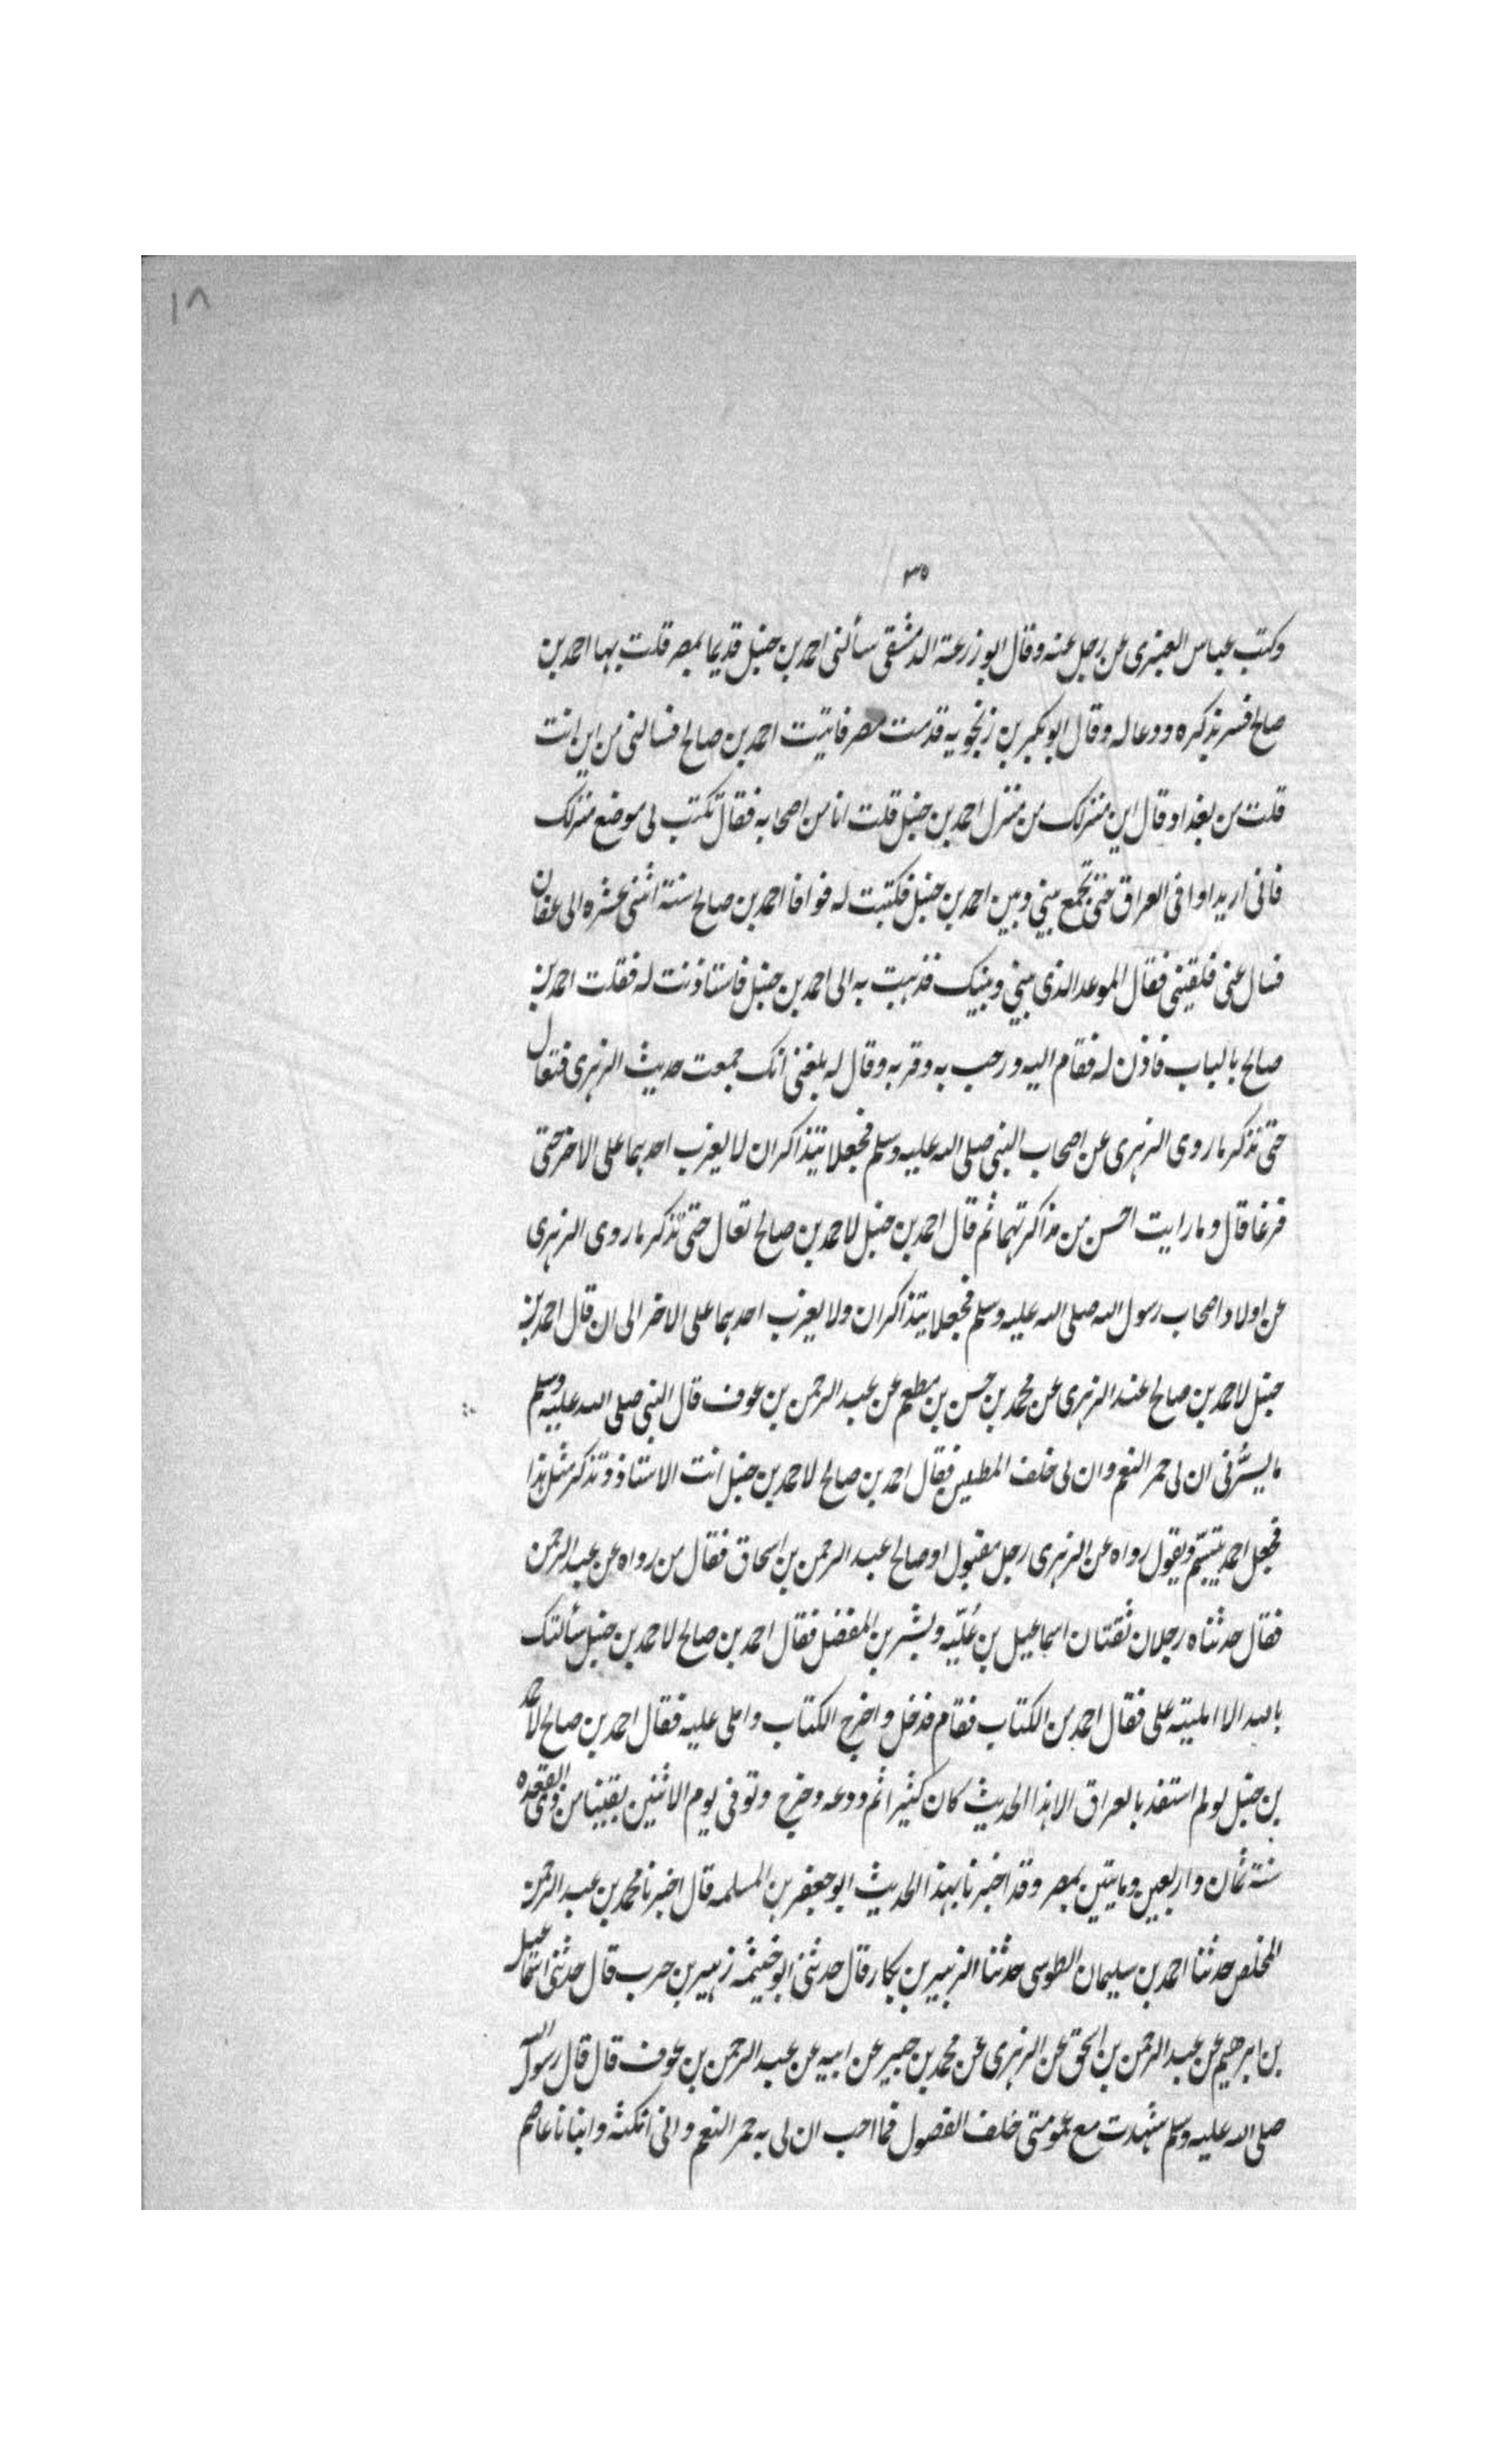 ١٨
٣٥
وكتب عباس العنبرى عن رجل عنه وقال ابو زرعة الدمشقى سألنى احمد بن حنبل قديما بمصر قلت بها احمد بن
صالح فسر بذكره ودعا له وقال ابو بكر بن زنجويه قدمت مصر فاتيت احمد بن صالح فسالنى من اين انت
قلت من بغداد قال اين منزلك من منزل احمد بن حنبل قلت انا من اصحابه فقال تكتب لى موضع منزلك
فانى اريد اوافى العراق حتى تجمع بينى وبين احمد بن حنبل فكتبت له فوافا احمد بن صالح سنة اثنى عشره الى عفان
فسال عنى فلقينى فقال الموعد الذى بينى وبينك فذهبت به الى احمد بن حنبل فاستاذنت له فقلت احمد بن
صالح بالباب فاذن له فقام اليه ورحب به وقربه وقال له بلغنى انك جمعت حديث الزهرى فتعال
حتى نذكر ما روى الزهرى عن اصحاب النبى صلى الله عليه وسلم فجعلا يتذاكران لا يغرب احدهما على الاخر حتى
فرغا قال وما رايت احسن من مذاكرتهما ثم قال احمد بن حنبل لاحمد بن صالح تعال حتى نذكر ما روى الزهرى
عن اولاد اصحاب رسول الله صلى الله عليه وسلم فجعلا يتذاكران ولا يغرب احدهما على الاخر الى ان قال احمد بن
حنبل لاحمد بن صالح عند الزهرى عن محمد بن حسن بن مطعم عن عبد الرحمن بن عوف قال النبى صلى الله عليه وسلم
ما يسرّنى ان لى حمر النعم وان لى خلف المطيبين فقال احمد بن صالح لاحمد بن حنبل انت الاستاذ وتذكر مثل هذا
فجعل احمد يتبسّم ويقول رواه عن الزهرى رجل مقبول او صالح عبد الرحمن بن اسحاق فقال من رواه عن عبد الرحمن
فقال حدثناه رجلان ثقتان اسماعيل بن عُليّه وبشر بن المفضل فقال احمد بن صالح لاحمد بن حنبل سألتك
بالله الا امليته على فقال احمد من الكتاب فقام فدخل واخرج الكتاب واملى عليه فقال احمد بن صالح لاحمد
بن حنبل لو لم استفد بالعراق الا هذا الحديث كان كثيرا ثم ودعه وخرج وتوفى يوم الاثنين بقينا من ذى القعده
سنة ثمان واربعين ومايتين بمصر وقد اخبرنا بهذا الحديث ابو جعفر بن المسلمه قال اخبرنا محمد بن عبد الرحمن
المخلص حدثنا احمد بن سليمان الطوسى حدثنا الزبير بن بكار قال حدثنى ابو خيثمه زهير بن حرب قال حدثنى اسماعيل
بن ابرهيم عن عبد الرحمن بن اسحق عن الزهرى عن محمد بن جبير عن ابيه عن عبد الرحمن بن عوف قال قال رسول الله
صلى الله عليه وسلم شهدت مع عمومتى خلف الفضول فما احب ان لى به حمر النعم وانى انكثه وانبانا عاصم